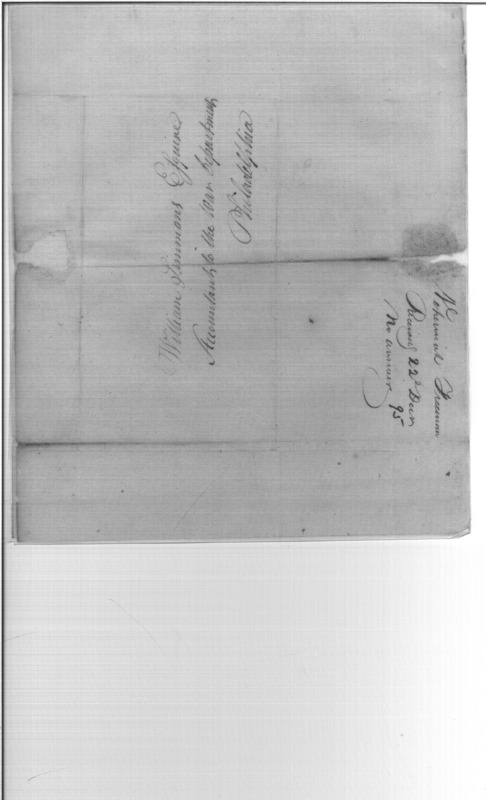 William Simmons Esquire
Accountant to the War Department
Philadelphia
Freeman
22d Decr 95
No answer